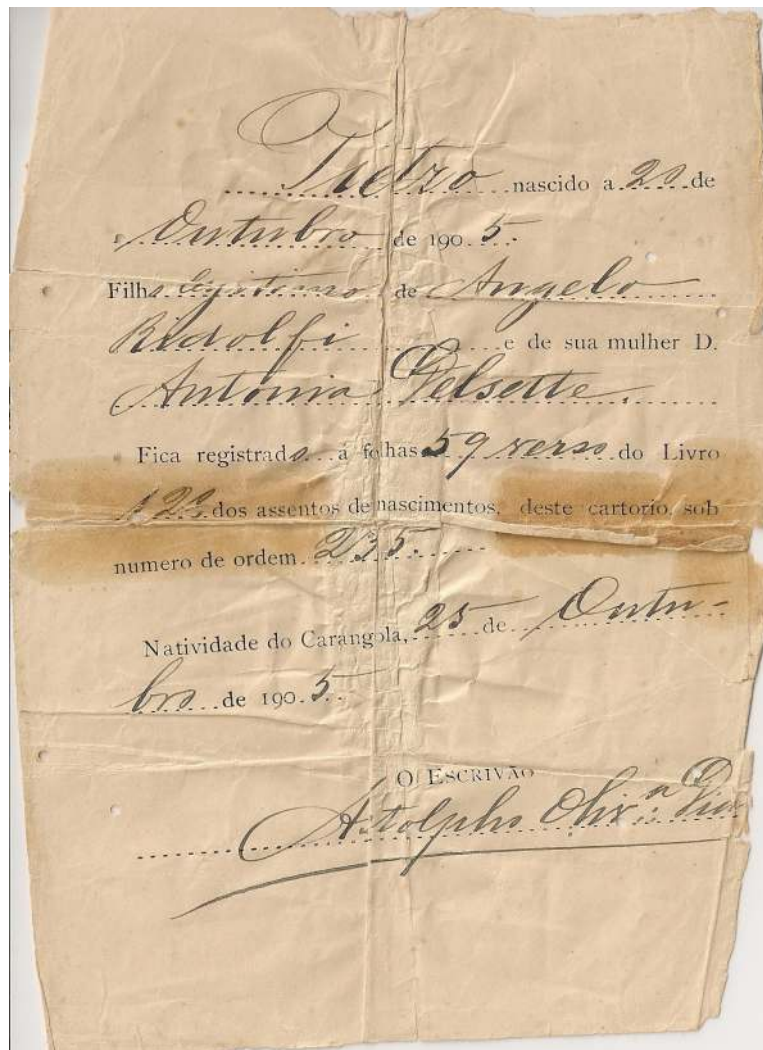 Pietro nascido a 20 de
Outubro de 1905.
Filho legitimo de Angelo
Ridolfi e de sua mulher D.
Antonia Delsette.
Fica registrado á folhas 59 verso do Livro
dos assentos de nascimentos, deste cartorio, sob
numero de ordem 235.
Natividade do Carangola, 25 de Outu-
bro de 1905.
O ESCRIVÃO
Astolpho Olivª